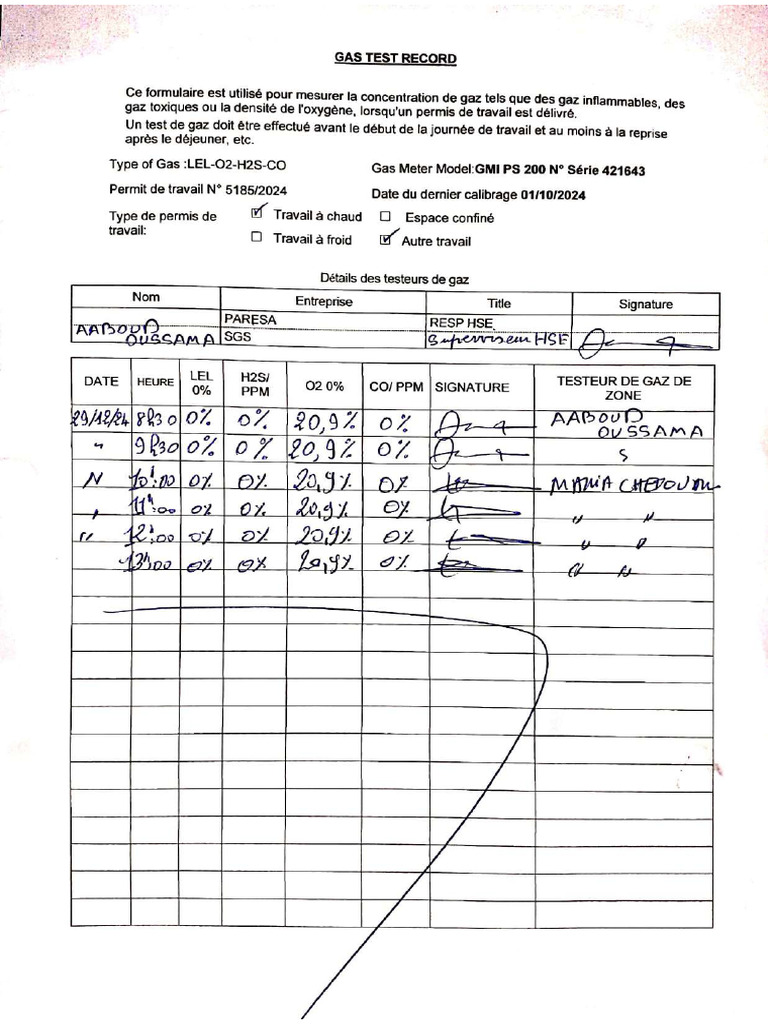 GAS TEST RECORD
Ce formulaire est utilisé pour mesurer la concentration de gaz tels que des gaz inflammables, des
gaz toxiques ou la densité de l'oxygène, lorsqu'un permis de travail est délivré.
Un test de gaz doit être effectué avant le début de la journée de travail et au moins à la reprise
après le déjeuner, etc.
Type of Gas :LEL-O2-H2S-CO Gas Meter Model:GMI PS 200 N° Série 421643
Permit de travail N° 5185/2024 Date du dernier calibrage 01/10/2024
Type de permis de travail: ☑ Travail à chaud ☐ Espace confiné
☐ Travail à froid ☑ Autre travail
Détails des testeurs de gaz
Nom Entreprise Title Signature
PARESA RESP HSE
AABOUD OUSSAMA SGS Superviseur HSE
DATE HEURE LEL 0% H2S/ PPM O2 0% CO/ PPM SIGNATURE TESTEUR DE GAZ DE ZONE
29/12/24 8h30 0% 0% 20,9% 0% AABOUD OUSSAMA
" 9h30 0% 0% 20,9% 0%
10h:00 0% 0% 20,9% 0% MARIA
11h:00 0% 0% 20,9% 0% " "
" 12h:00 0% 0% 20,9% 0% " "
13h:00 0% 0% 20,9% 0% " "